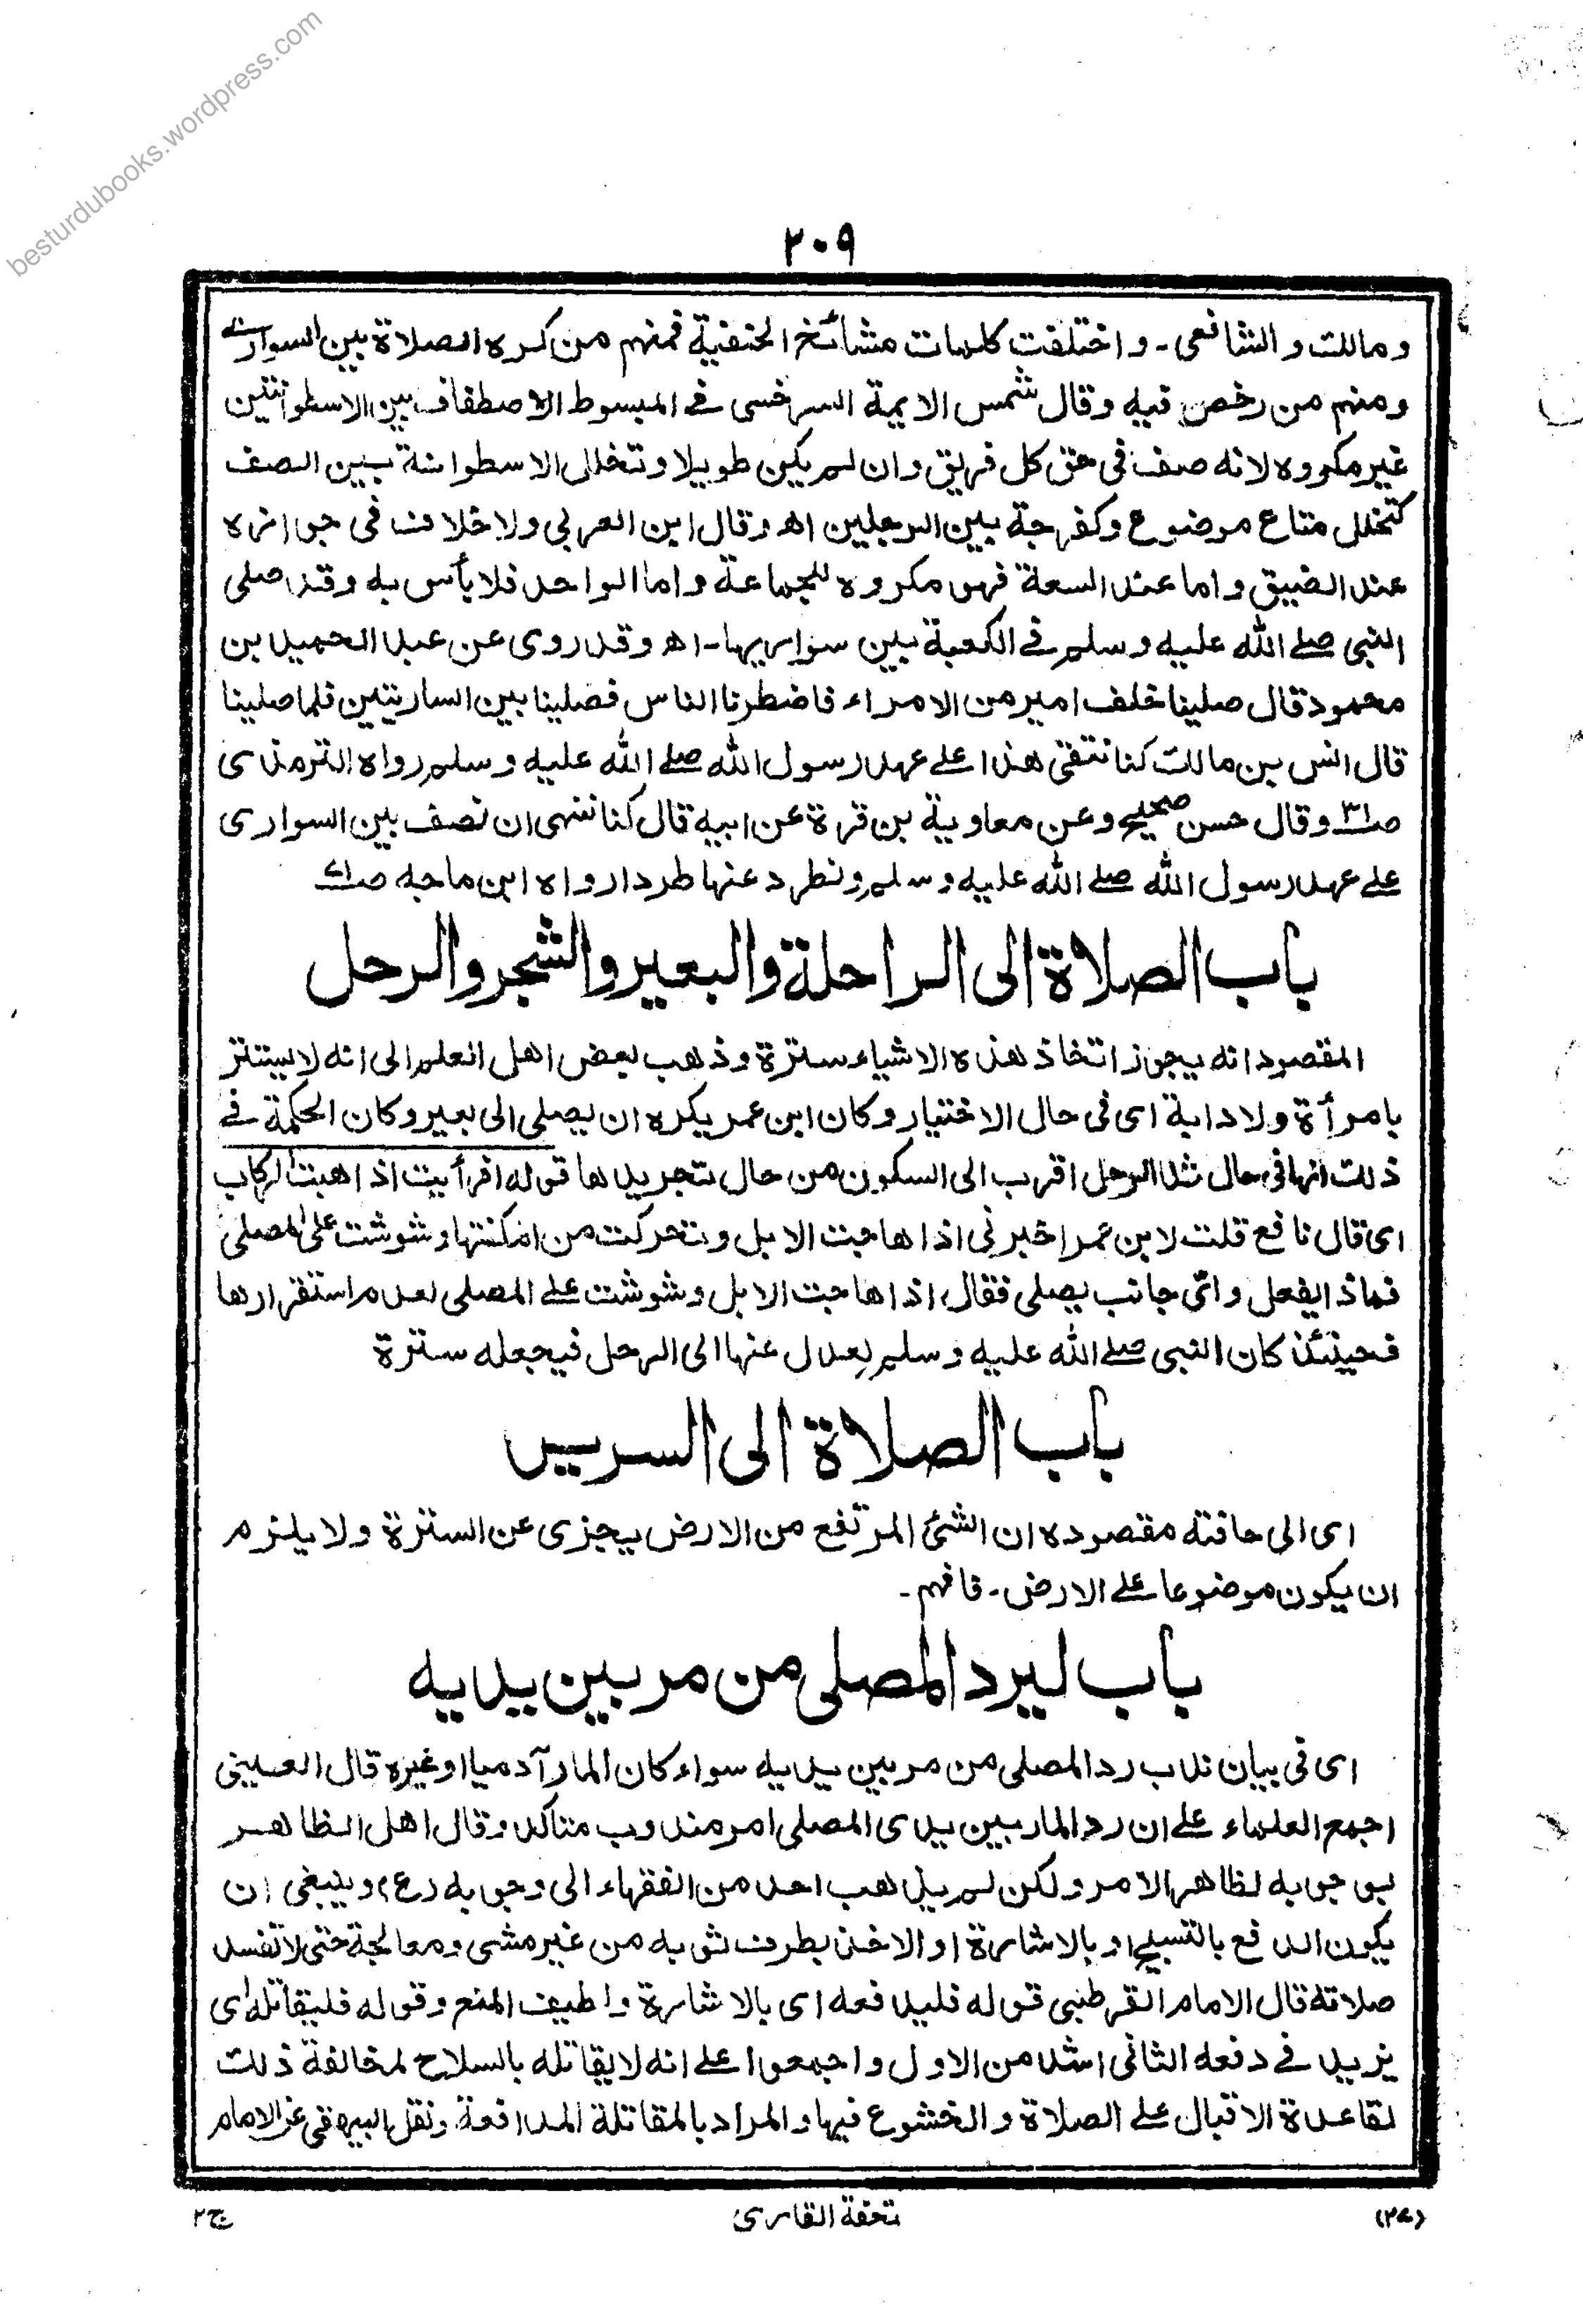 besturdubooks.wordpress.com
٢٠٩
ومالك والشافعى ۔ واختلفت كلمات مشائخ الحنفية فمنهم من كره الصلاة بين السوارى
ومنهم من رخص فيه وقال شمس الايمة السرخسى فى المبسوط الاصطفاف بين الاسطوانتين
غير مكروه لانه صف فى حق كل فريق وان لم يكن طويلا وتخلل الاسطوانة بين الصف
كتخلل متاع موضوع وكفرجة بين الرجلين اھ وقال ابن العربي ولا خلاف فى جوازه
عند الضيق واما عند السعة فهو مكروه للجماعة واما الواحد فلا بأس به وقد صلى
النبى صلے الله عليه وسلم فے الكعبة بين سواريها ۔ اھ وقد روى عن عبد الحميد بن
محمود قال صلينا خلف امير من الامراء فاضطرنا الناس فصلينا بين الساريتين فلما صلينا
قال انس بن مالك كنا نتقى هذا علے عهد رسول الله صلے الله عليه وسلم رواه الترمذى
صـ٣١ وقال حسن صحيح وعن معاوية بن قرة عن ابيه قال كنا ننهى ان نصف بين السوارى
علے عهد رسول الله صلے الله عليه وسلم ونطرد عنها طردا رواه ابن ماجه صـ٧١
باب الصلاة الى الراحلة والبعير والشجر والرحل
المقصود انه يجوز اتخاذ هذه الاشياء سترة وذهب بعض اهل العلم الى انه لا يستتر
بامرأة ولا دابة اى فى حال الاختيار وكان ابن عمر يكره ان يصلى الى بعير وكان الحكمة فے
ذلك انها فى حال شد الرحل اقرب الى السكون من حال تجريدها قوله افرأيت اذا هبت الركاب
اى قال نافع قلت لابن عمر اخبرنى اذا هاجت الابل وتحركت من امكنتها وشوشت على المصلى
فماذا يفعل واىّ جانب يصلى فقال اذا هاجت الابل وشوشت علے المصلى لعدم استقرارها
فحينئذ كان النبى صلے الله عليه وسلم يعدل عنها الى الرحل فيجعله سترة
باب الصلاة الى السرير
اى الى حافته مقصوده ان الشئ المرتفع من الارض يجزى عن السترة ولا يلزم
ان يكون موضوعا علے الارض ۔ فافهم ۔
باب ليرد المصلى من مر بين يديه
اى فى بيان ندب رد المصلى من مر بين يديه سواء كان المار آدميا او غيره قال العينى
اجمع العلماء علے ان رد المار بين يدى المصلى امر مندوب متاكد وقال اهل الظاهر
بوجوبه لظاهر الامر ولكن لم يذهب احد من الفقهاء الى وجوبه (ع) وينبغى ان
يكون الدفع بالتسبيح او بالاشارة او الاخذ بطرف ثوبه من غير مشى ومعالجة حتى لا تفسد
صلاته قال الامام القرطبى قوله فليدفعه اى بالاشارة ولطيف المنع وقوله فليقاتله اى
يزيد فے دفعه الثانى اشد من الاول واجمعوا علے انه لا يقاتله بالسلاح لمخالفة ذلك
لقاعدة الاقبال علے الصلاة والخشوع فيها والمراد بالمقاتلة المدافعة ونقل البيهقى عن الامام
(٢٧)
تحفة القارى
ج٢